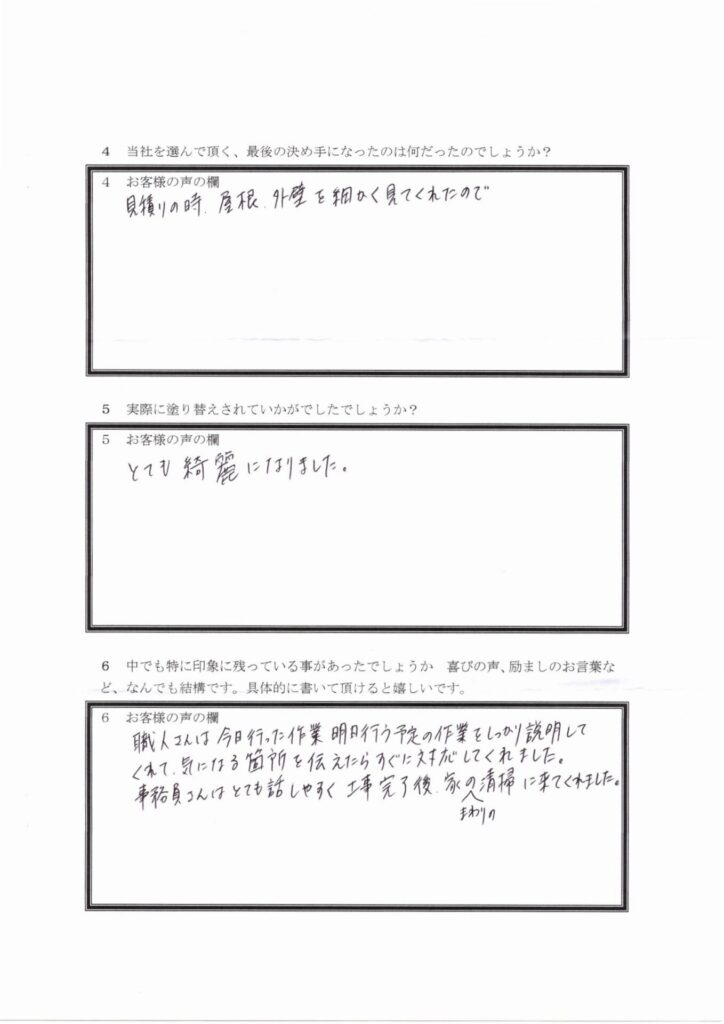 4 当社を選んで頂く、最後の決め手になったのは何だったのでしょうか？
4 お客様の声の欄
見積りの時、屋根、外壁を細かく見てくれたので
5 実際に塗り替えされていかがでしたでしょうか？
5 お客様の声の欄
とても綺麗になりました。
6 中でも特に印象に残っている事があったでしょうか 喜びの声、励ましのお言葉な
ど、なんでも結構です。具体的に書いて頂けると嬉しいです。
6 お客様の声の欄
職人さんは今日行った作業 明日行う予定の作業をしっかり説明して
くれて、気になる箇所を伝えたらすぐに対応してくれました。
事務員さんはとても話しやすく 工事完了後、家の清掃に来てくれました。
まわりの